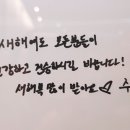 새해에도 모든분들이
건강하고 건승하시길 바랍니다!
새해복 많이 받아요♡